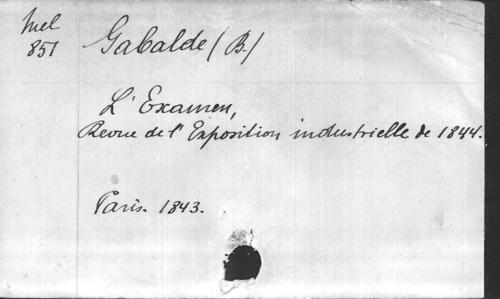 Mel
851
Gabalde (B.)
L'Examen,
Revue de l'Exposition industrielle de 1844.
Paris. 1843.